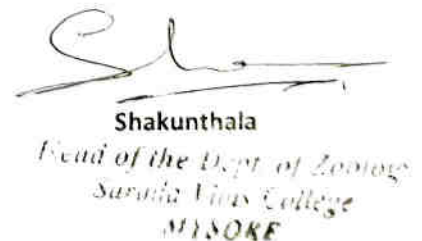 Shakunthala
Head of the Dept. of Zoology
Sarada Vilas College
MYSORE